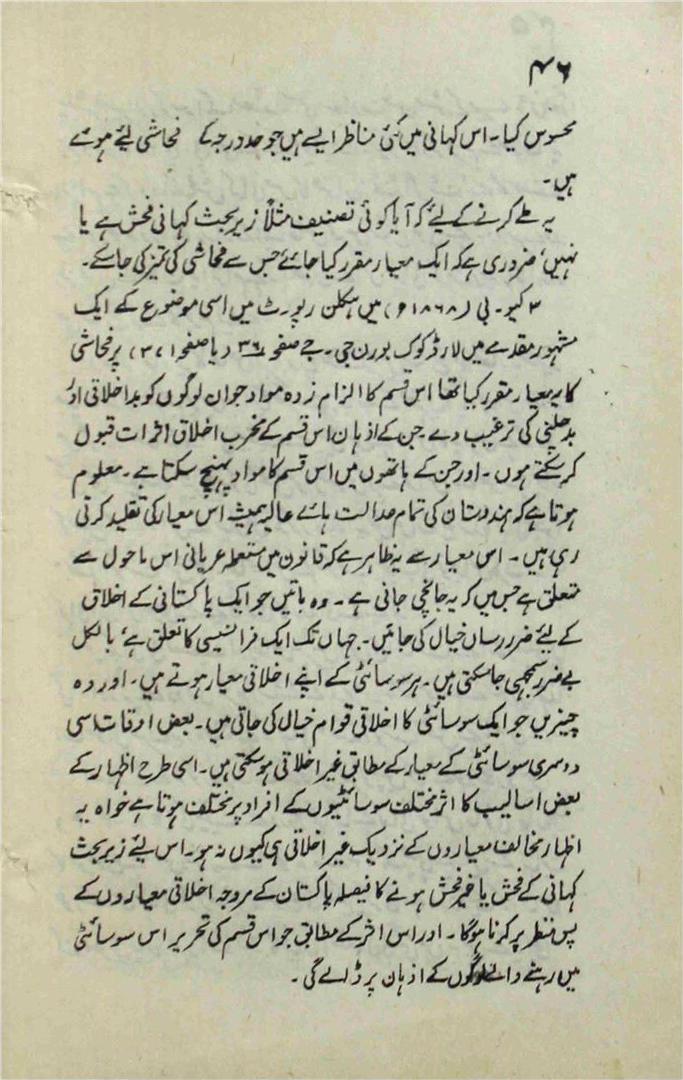 ۴۶
محسوس کیا۔ اس کہانی میں کئی مناظر ایسے ہیں جو حد درجہ کے فحاشی لیئے ہوئے
ہیں۔
یہ طے کرنے کے لیئے کہ آیا کوئی تصنیف مثلاً زیر بحث کہانی فحش ہے یا
نہیں، ضروری ہے کہ ایک معیار مقرر کیا جائے جس سے فحاشی کی تمیز کی جاسکے۔
۳ کیو۔ بی (۱۸۶۸ء) میں ہکلن رپورٹ میں اسی موضوع کے ایک
مشہور مقدمے میں لارڈ کوک بورن جی۔ جے صفحہ ۳۶۰ (یا صفحہ ۳۷۱) پر فحاشی
کا یہ معیار مقرر کیا تھا اس قسم کا الزام زدہ مواد جو ان لوگوں کو بداخلاقی اور
بدچلنی کی ترغیب دے جن کے اذہان اس قسم کے مخرب اخلاق اثرات قبول
کر سکتے ہوں۔ اور جن کے ہاتھوں میں اس قسم کا مواد پہنچ سکتا ہے۔ معلوم
ہوتا ہے کہ ہندوستان کی تمام عدالت ہائے عالیہ ہمیشہ اس معیار کی تقلید کرتی
رہی ہیں۔ اس معیار سے یہ ظاہر ہے کہ قانون میں مستعملہ عریانی اس ماحول سے
متعلق ہے جس میں کہ یہ جانچی جاتی ہے۔ وہ باتیں جو ایک پاکستانی کے اخلاق
کے لیئے ضرر رساں خیال کی جائیں۔ جہاں تک ایک فرانسیسی کا تعلق ہے، بالکل
بے ضرر سمجھی جاسکتی ہیں۔ ہر سوسائٹی کے اپنے اخلاقی معیار ہوتے ہیں۔ اور وہ
چیزیں جو ایک سوسائٹی کا اخلاقی قوام خیال کی جاتی ہیں۔ بعض اوقات اسی
دوسری سوسائٹی کے معیار کے مطابق غیر اخلاقی ہوسکتی ہیں۔ اسی طرح اظہار کے
بعض اسالیب کا اثر مختلف سوسائٹیوں کے افراد پر مختلف ہوتا ہے خواہ یہ
اظہار مخالف معیاروں کے نزدیک غیر اخلاقی ہی کیوں نہ ہو۔ اس لیئے زیر بحث
کہانی کے فحش یا غیر فحش ہونے کا فیصلہ پاکستان کے مروجہ اخلاقی معیاروں کے
پس منظر پر کرنا ہوگا۔ اور اس اثر کے مطابق جو اس قسم کی تحریر اس سوسائٹی
میں رہنے والے لوگوں کے اذہان پر ڈالے گی۔